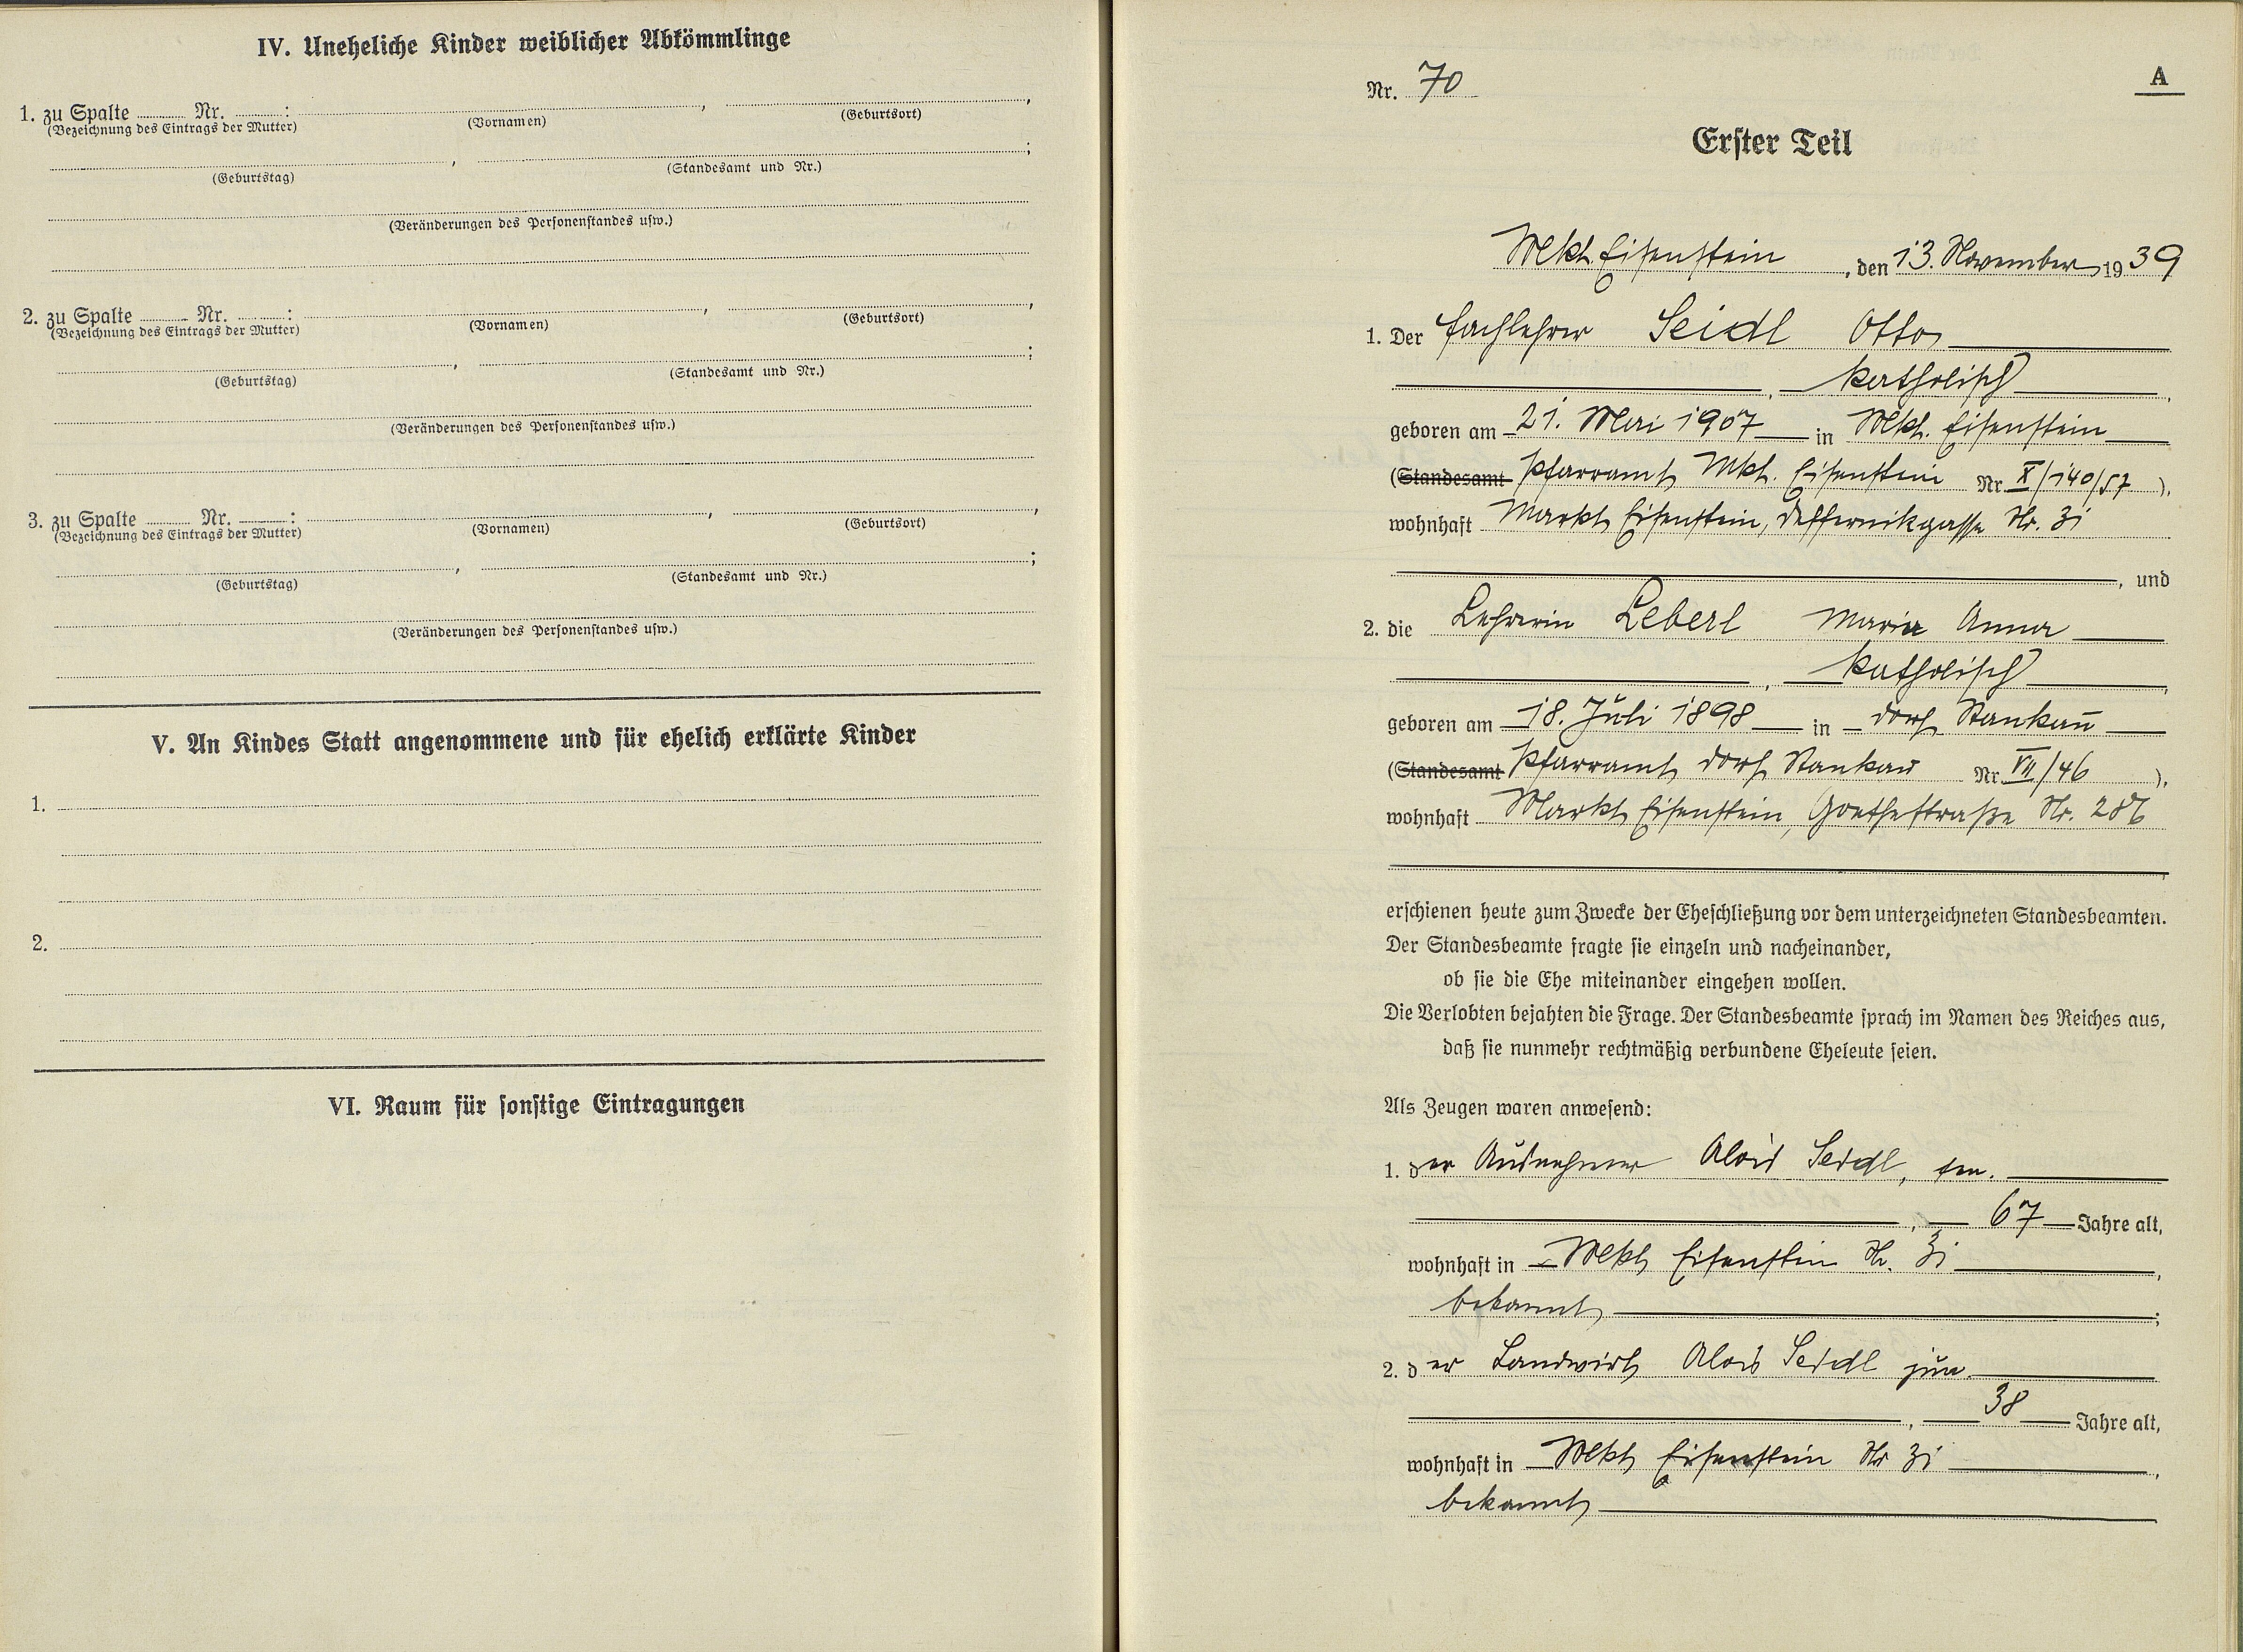 IV. Uneheliche Kinder weiblicher Abkömmlinge
1. zu Spalte ........ Nr. ........: ........, ........,
(Bezeichnung des Eintrags der Mutter) (Vornamen) (Geburtsort)
........, ........;
(Geburtstag) (Standesamt und Nr.)
(Veränderungen des Personenstandes usw.)
2. zu Spalte ........ Nr. ........: ........, ........,
(Bezeichnung des Eintrags der Mutter) (Vornamen) (Geburtsort)
........, ........;
(Geburtstag) (Standesamt und Nr.)
(Veränderungen des Personenstandes usw.)
3. zu Spalte ........ Nr. ........: ........, ........,
(Bezeichnung des Eintrags der Mutter) (Vornamen) (Geburtsort)
........, ........;
(Geburtstag) (Standesamt und Nr.)
(Veränderungen des Personenstandes usw.)
V. An Kindes Statt angenommene und für ehelich erklärte Kinder
1.
2.
VI. Raum für sonstige Eintragungen
A
Nr. 70
Erster Teil
Mkt. Eisenstein, den 13. November 1939
1. Der Fachlehrer Seidl Otto
, katholisch,
geboren am 21. Mai 1907 in Mkt. Eisenstein
(Standesamt Pfarramt Mkt. Eisenstein Nr. X/140/57),
wohnhaft Markt Eisenstein, Deffernikgasse Nr. 31
, und
2. die Lehrerin Leberl Maria Anna
, katholisch,
geboren am 18. Juli 1898 in Dorf Stankau
(Standesamt Pfarramt Dorf Stankau Nr. VII/46),
wohnhaft Markt Eisenstein, Goethestraße Nr. 286
,
erschienen heute zum Zwecke der Eheschließung vor dem unterzeichneten Standesbeamten.
Der Standesbeamte fragte sie einzeln und nacheinander,
ob sie die Ehe miteinander eingehen wollen.
Die Verlobten bejahten die Frage. Der Standesbeamte sprach im Namen des Reiches aus,
daß sie nunmehr rechtmäßig verbundene Eheleute seien.
Als Zeugen waren anwesend:
1. der Ausnehmer Alois Seidl, sen.
, 67 Jahre alt,
wohnhaft in Mkt Eisenstein Nr. 31,
bekannt;
2. der Landwirt Alois Seidl jun.
, 38 Jahre alt,
wohnhaft in Mkt Eisenstein Nr 31,
bekannt